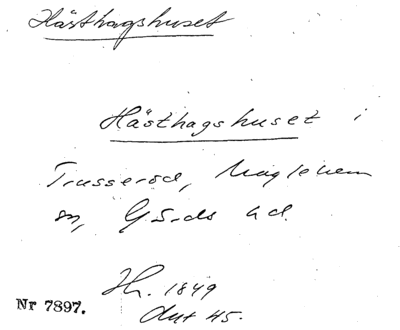 Hästhagshuset
Hästhagshuset i
Trusserød, Maglehem
sn, Gärds hd.
Hr. 1849
Nr 7897.
dut 45.